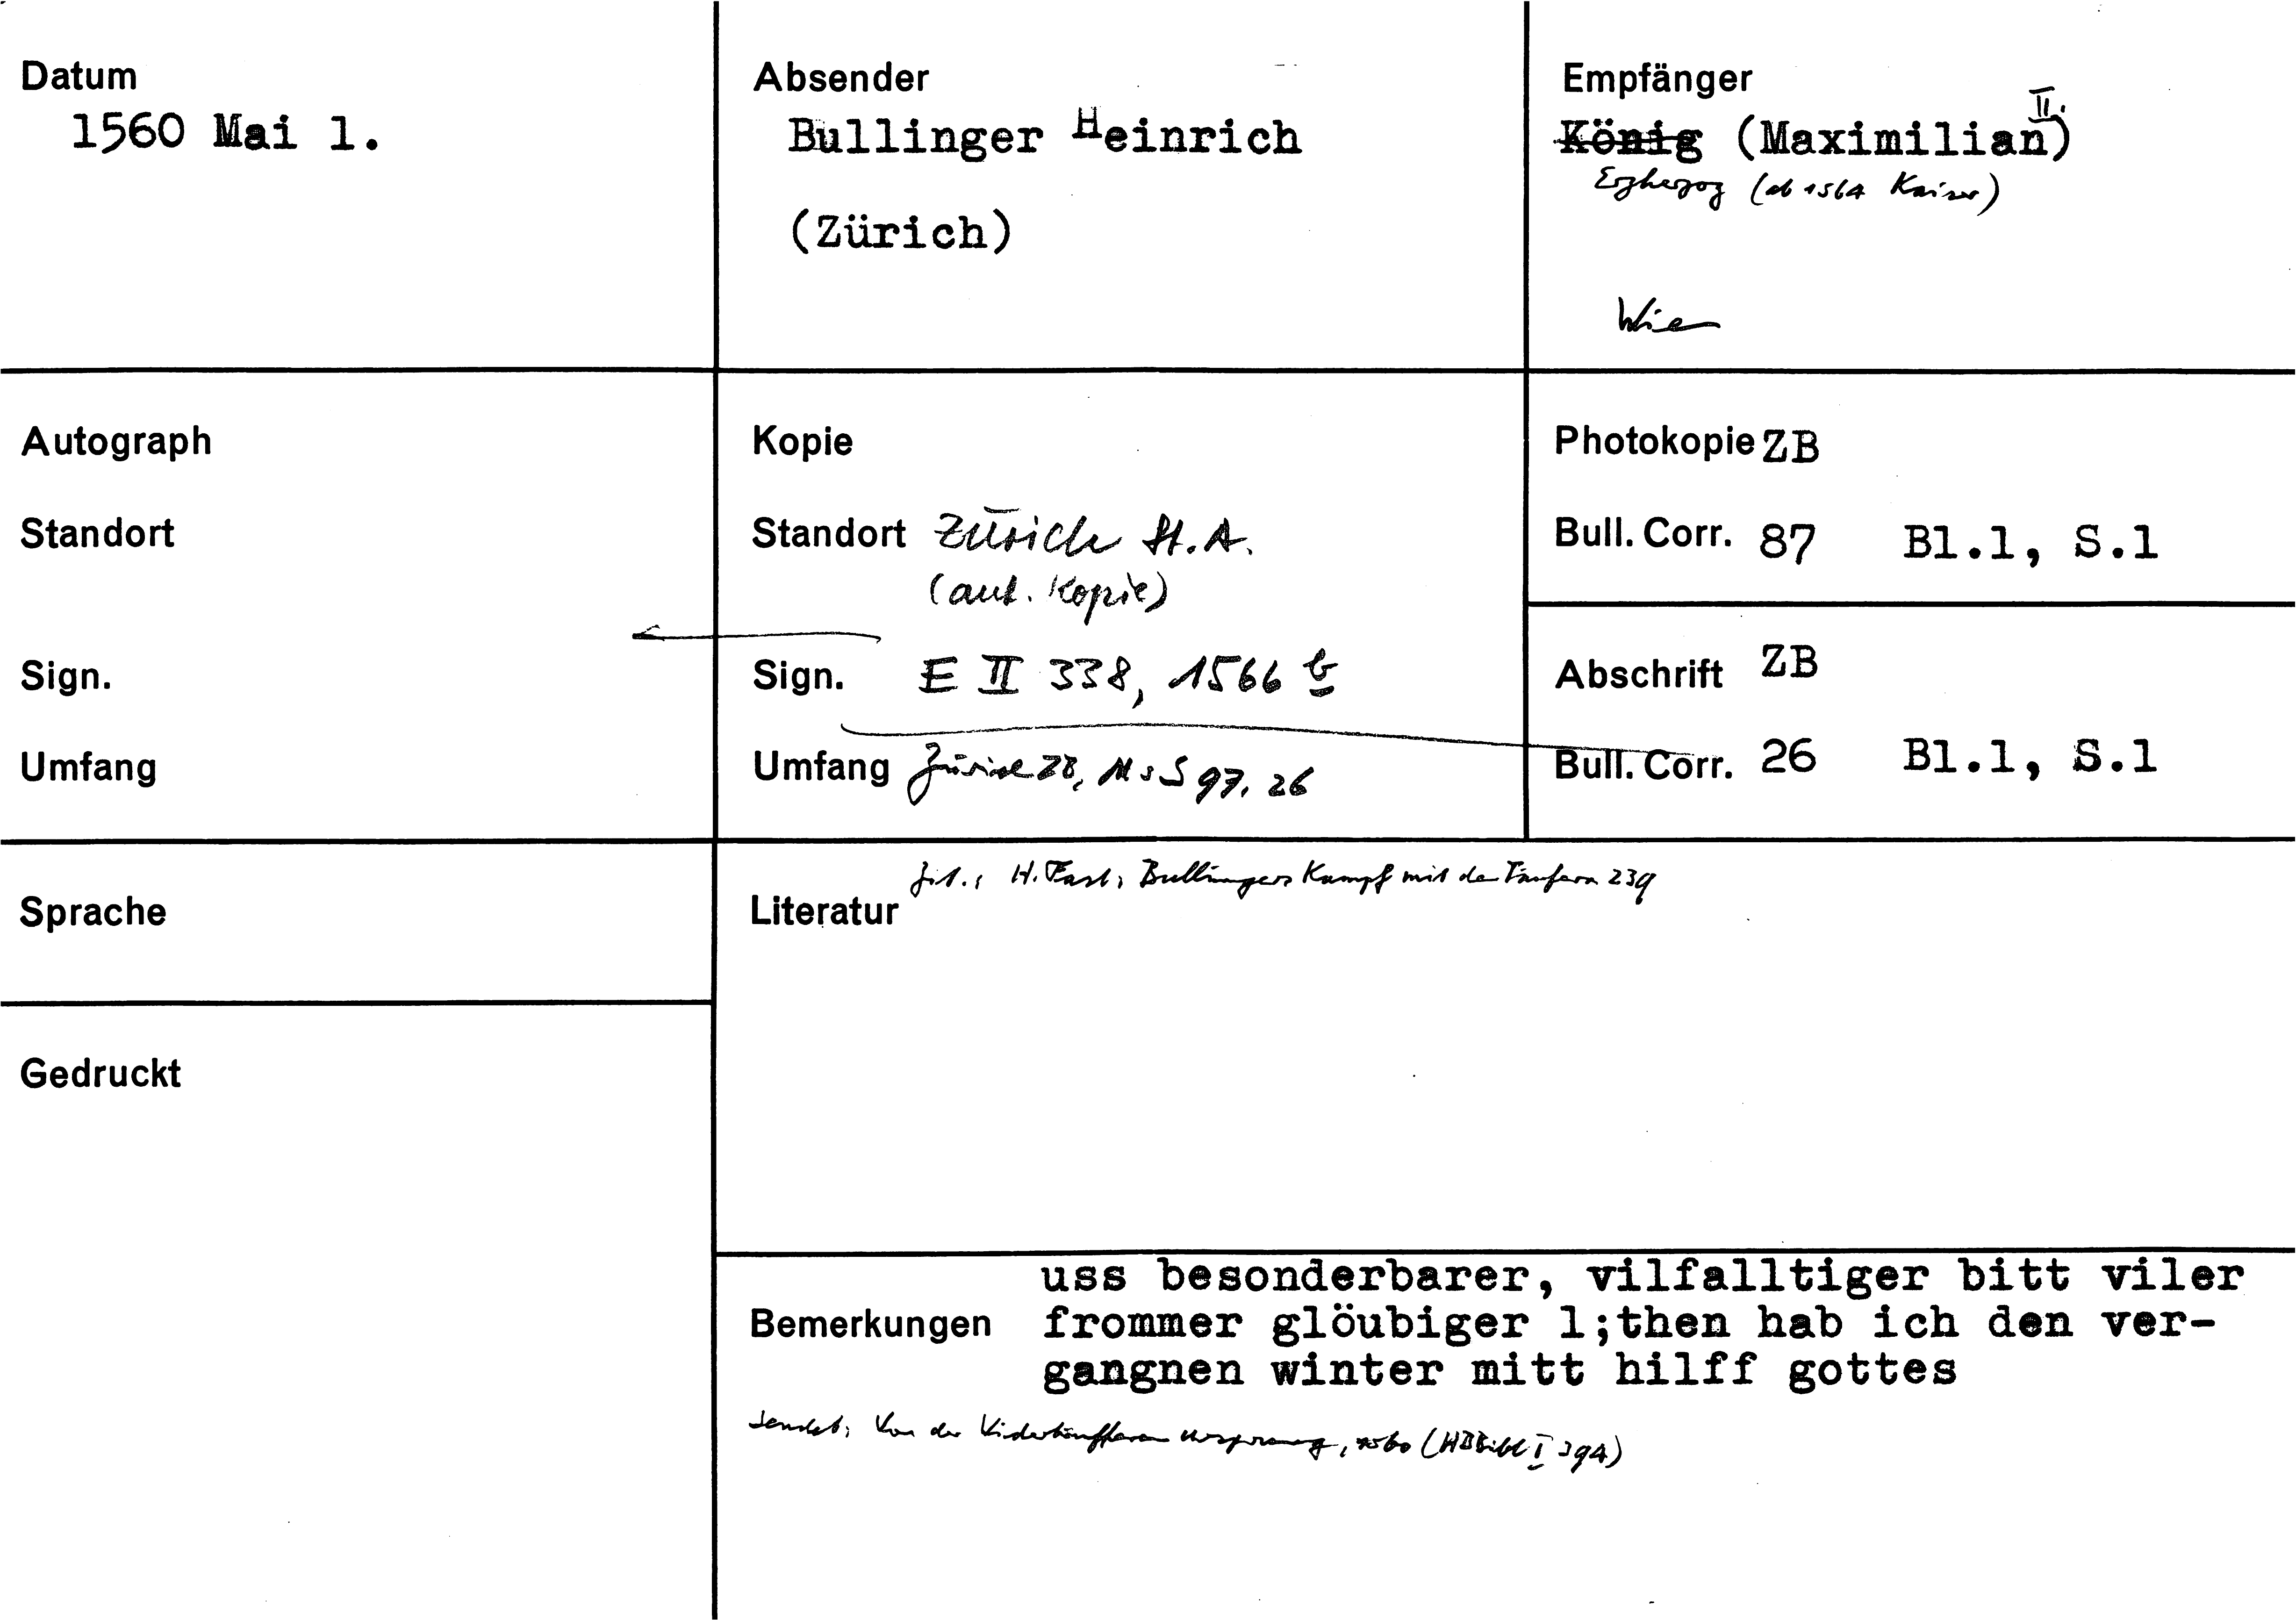 Datum
1560 Mai 1.
Absender
Bullinger Heinrich
(Zürich)
Empfänger
König (Maximilian II.)
Erzherzog (ab 1564 Kaiser)
Wien
Autograph
Standort
Sign.
Umfang
Kopie
Standort Zürich St.A.
(aut. Kopie)
Sign. E II 338, 1566 b
Umfang Zürich ZB, Ms S 97, 26
Photokopie ZB
Bull. Corr. 87 Bl.1, S.1
Abschrift ZB
Bull. Corr. 26 Bl.1, S.1
Sprache
Gedruckt
Zit.: H. Fast, Bullingers Kampf mit den Täufern 239
Literatur
uss besonderbarer, vilfalltiger bitt viler
Bemerkungen frommer glöubiger l;then hab ich den ver-
gangnen winter mitt hilff gottes
sendet: Von der Widertöufferen ursprung, 1560 (HBBibl I 394)